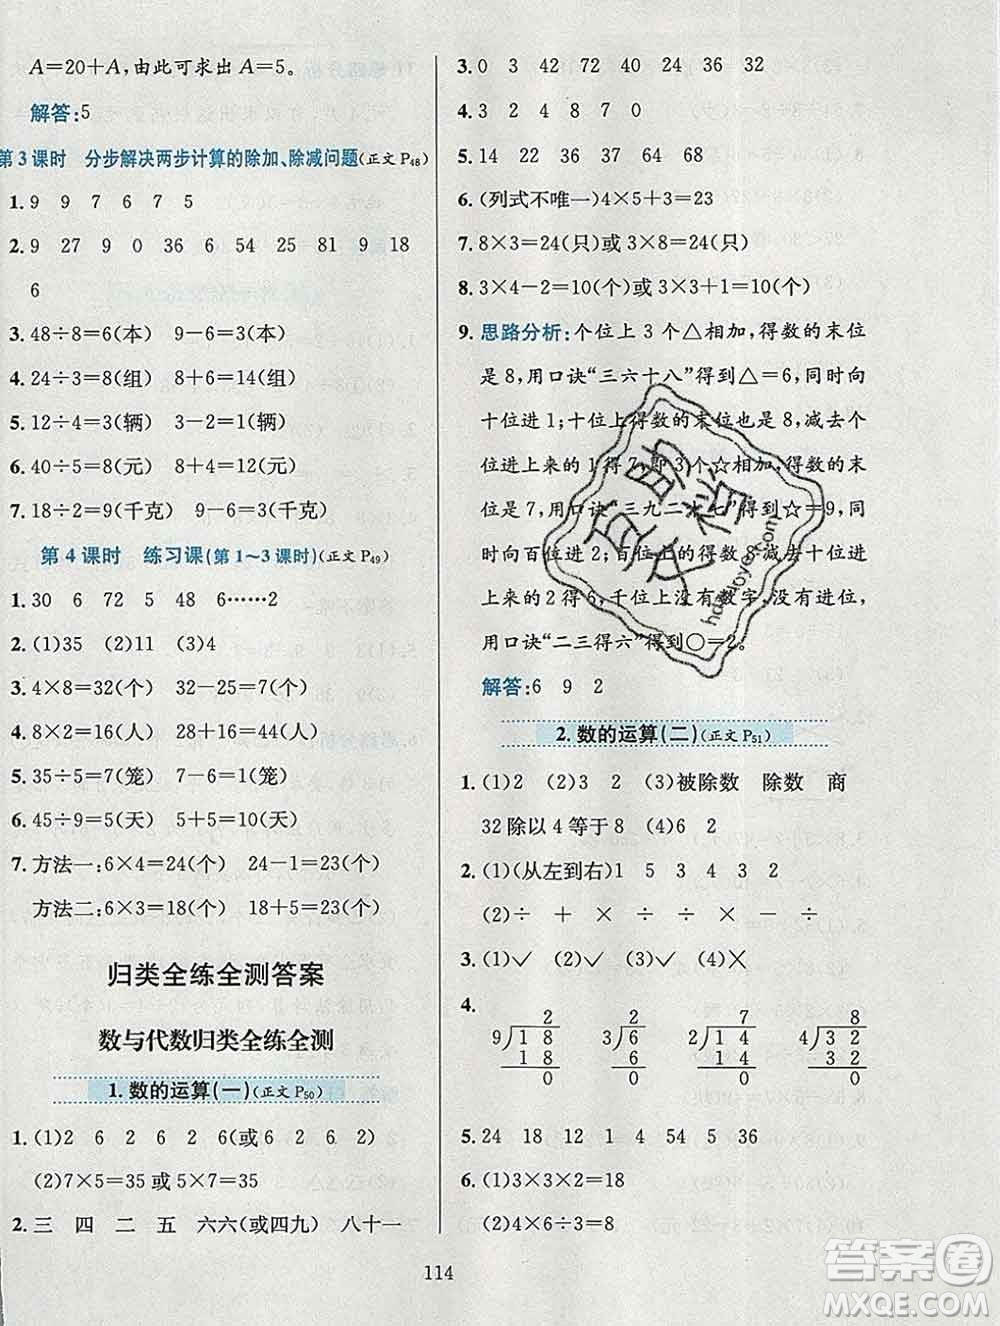 A=20+A,由此可求出A=5。
解答:5
第3课时 分步解决两步计算的除加、除减问题(正文P48)
1.9 9 7 6 7 5
2.9 27 9 0 36 6 54 25 81 9 18
6
3.48÷8=6(本) 9-6=3(本)
4.24÷3=8(组) 8+6=14(组)
5.12÷4=3(辆) 3-2=1(辆)
6.40÷5=8(元) 8+4=12(元)
7.18÷2=9(千克) 9-6=3(千克)
第4课时 练习课(第1~3课时)(正文P49)
1.30 6 72 5 48 6……2
2.(1)35 (2)11 (3)4
3.4×8=32(个) 32-15=17(个)
4.8×2=16(人) 28+16=44(人)
5.35÷5=7(笼) 7-6=1(笼)
6.45÷9=5(天) 5+5=10(天)
7.方法一:6×4=24(个) 24-1=23(个)
方法二:6×3=18(个) 18+5=23(个)
归类全练全测答案
数与代数归类全练全测
1.数的运算(一)(正文P50)
1.(1)2 6 2 6 2 6(或6 2 6 2)
(2)7×5=35或5×7=35
2.三 四 二 五 六六(或四九) 八十一
3.0 3 42 40 24 36 32
4.3 2 4 8 7 0
5.14 22 68 36 16 56
6.(列式不唯一)4×5+3=23
7.8×3=24(只)或3×8=24(只)
8.3×4-2=10(个)或3×3+1=10(个)
9.思路分析:个位上3个△相加,得数的末位
是8,用口诀“三六十八”得到△=6,同时向
十位进1;十位上得数的末位也是8,减去个
位进上来的1得7,即3个☆相加,得数的末
位是7,用口诀“三九二十七”得到☆=9,同
时向百位进2;百位上的8,减去十位进上
来的2得6,千位上没有数字,没有进位,
用口诀“二三得六”得到○=2。
解答:6 9 2
2.数的运算(二)(正文P51)
1.(1)2 (2)3 2 (3)被除数 除数 商
32除以4等于8 (4)6 2
2.(1)(从左到右)1 5 3 4 3 2
(2)÷ + × - × - ÷
3.(1)✓ (2)✓ (3)✓ (4)×
4.
2 2 7 8
9)18 3)6 2)14 4)32
18 6 14 32
0 0 0 0
5.24 18 12 1 4 54 5 36
6.(1)3×3×2=18
(2)4×6÷3=8
114
互助文档
hdzuoyewen
答案圈
MXQE.COM